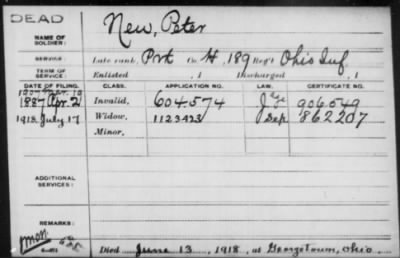 DEAD
NAME OF SOLDIER: New, Peter
SERVICE: Late rank, Prvt Co. H, 189 Reg't Ohio Inf
TERM OF SERVICE: Enlisted , 1 Discharged , 1
DATE OF FILING. CLASS. APPLICATION NO. LAW. CERTIFICATE NO.
1887 Apr. 2 Invalid, 604.574 906549
1918 July 17 Widow, 1123423 862207
Minor,
ADDITIONAL SERVICES:
REMARKS:
Died June 13, 1918, at Georgetown, Ohio.